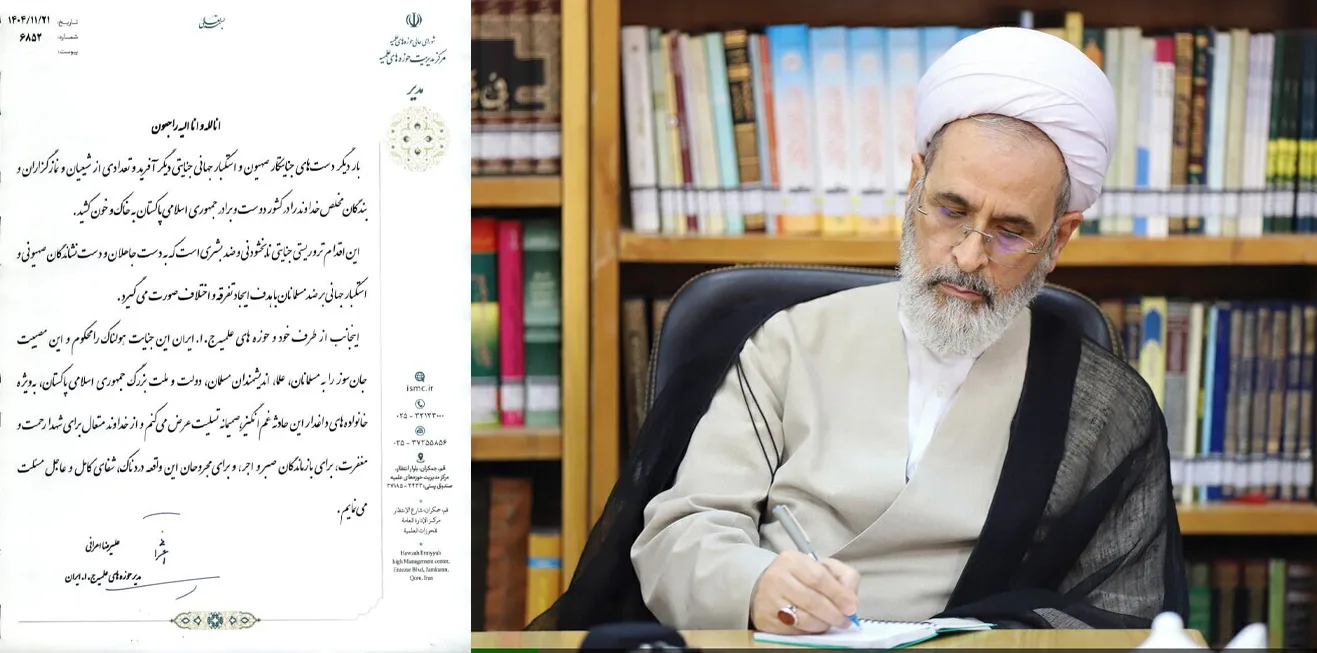 بسمه‌تعالی
تاریخ: ۱۴۰۴/۱۱/۲۱
شماره: ۶۸۵۲
پیوست:
شورای عالی حوزه‌های علمیه
مرکز مدیریت حوزه‌های علمیه
مدیر
انا لله و انا الیه راجعون
بار دیگر دست‌های جنایتکار صهیون و استکبار جهانی جنایتی دیگر آفرید و تعدادی از شیعیان و نمازگزاران و
بندگان مخلص خداوند را در کشور دوست و برادر جمهوری اسلامی پاکستان به خاک و خون کشید.
این اقدام تروریستی جنایتی نابخشودنی و ضد بشری است که به دست جاهلان و دست نشاندگان صهیونی و
استکبار جهانی بر ضد مسلمانان با هدف ایجاد تفرقه و اختلاف صورت می گیرد.
اینجانب از طرف خود و حوزه های علمیه ج.ا.ایران این جنایت هولناک را محکوم و این مصیبت
جان‌سوز را به مسلمانان، علما، اندیشمندان مسلمان، دولت و ملت بزرگ جمهوری اسلامی پاکستان، به‌ویژه
خانواده های داغدار این حادثه غم انگیز صمیمانه تسلیت عرض می‌کنم و از خداوند متعال برای شهدا رحمت و
مغفرت، برای بازماندگان صبر و اجر، و برای مجروحان این واقعه دردناک، شفای کامل و عاجل مسئلت
می نمایم.
علیرضا اعرافی
مدیر حوزه های علمیه ج.ا.ایران
ismc.ir
۰۲۵ - ۳۲۱۲۳۰۰۰
۰۲۵ - ۳۷۲۵۵۸۵۶
قم، جمکران، بلوار انتظار،
مرکز مدیریت حوزه‌های علمیه
صندوق پستی: ۳۷۱۸۵-۳۴۳۳
قم، جمکران، شارع الانتظار
مرکز الإدارة العامة
للحوزات العلمية
Hawzah Ilmiyyah
high Management center,
Entezar Blvd, Jamkaran,
Qom, Iran